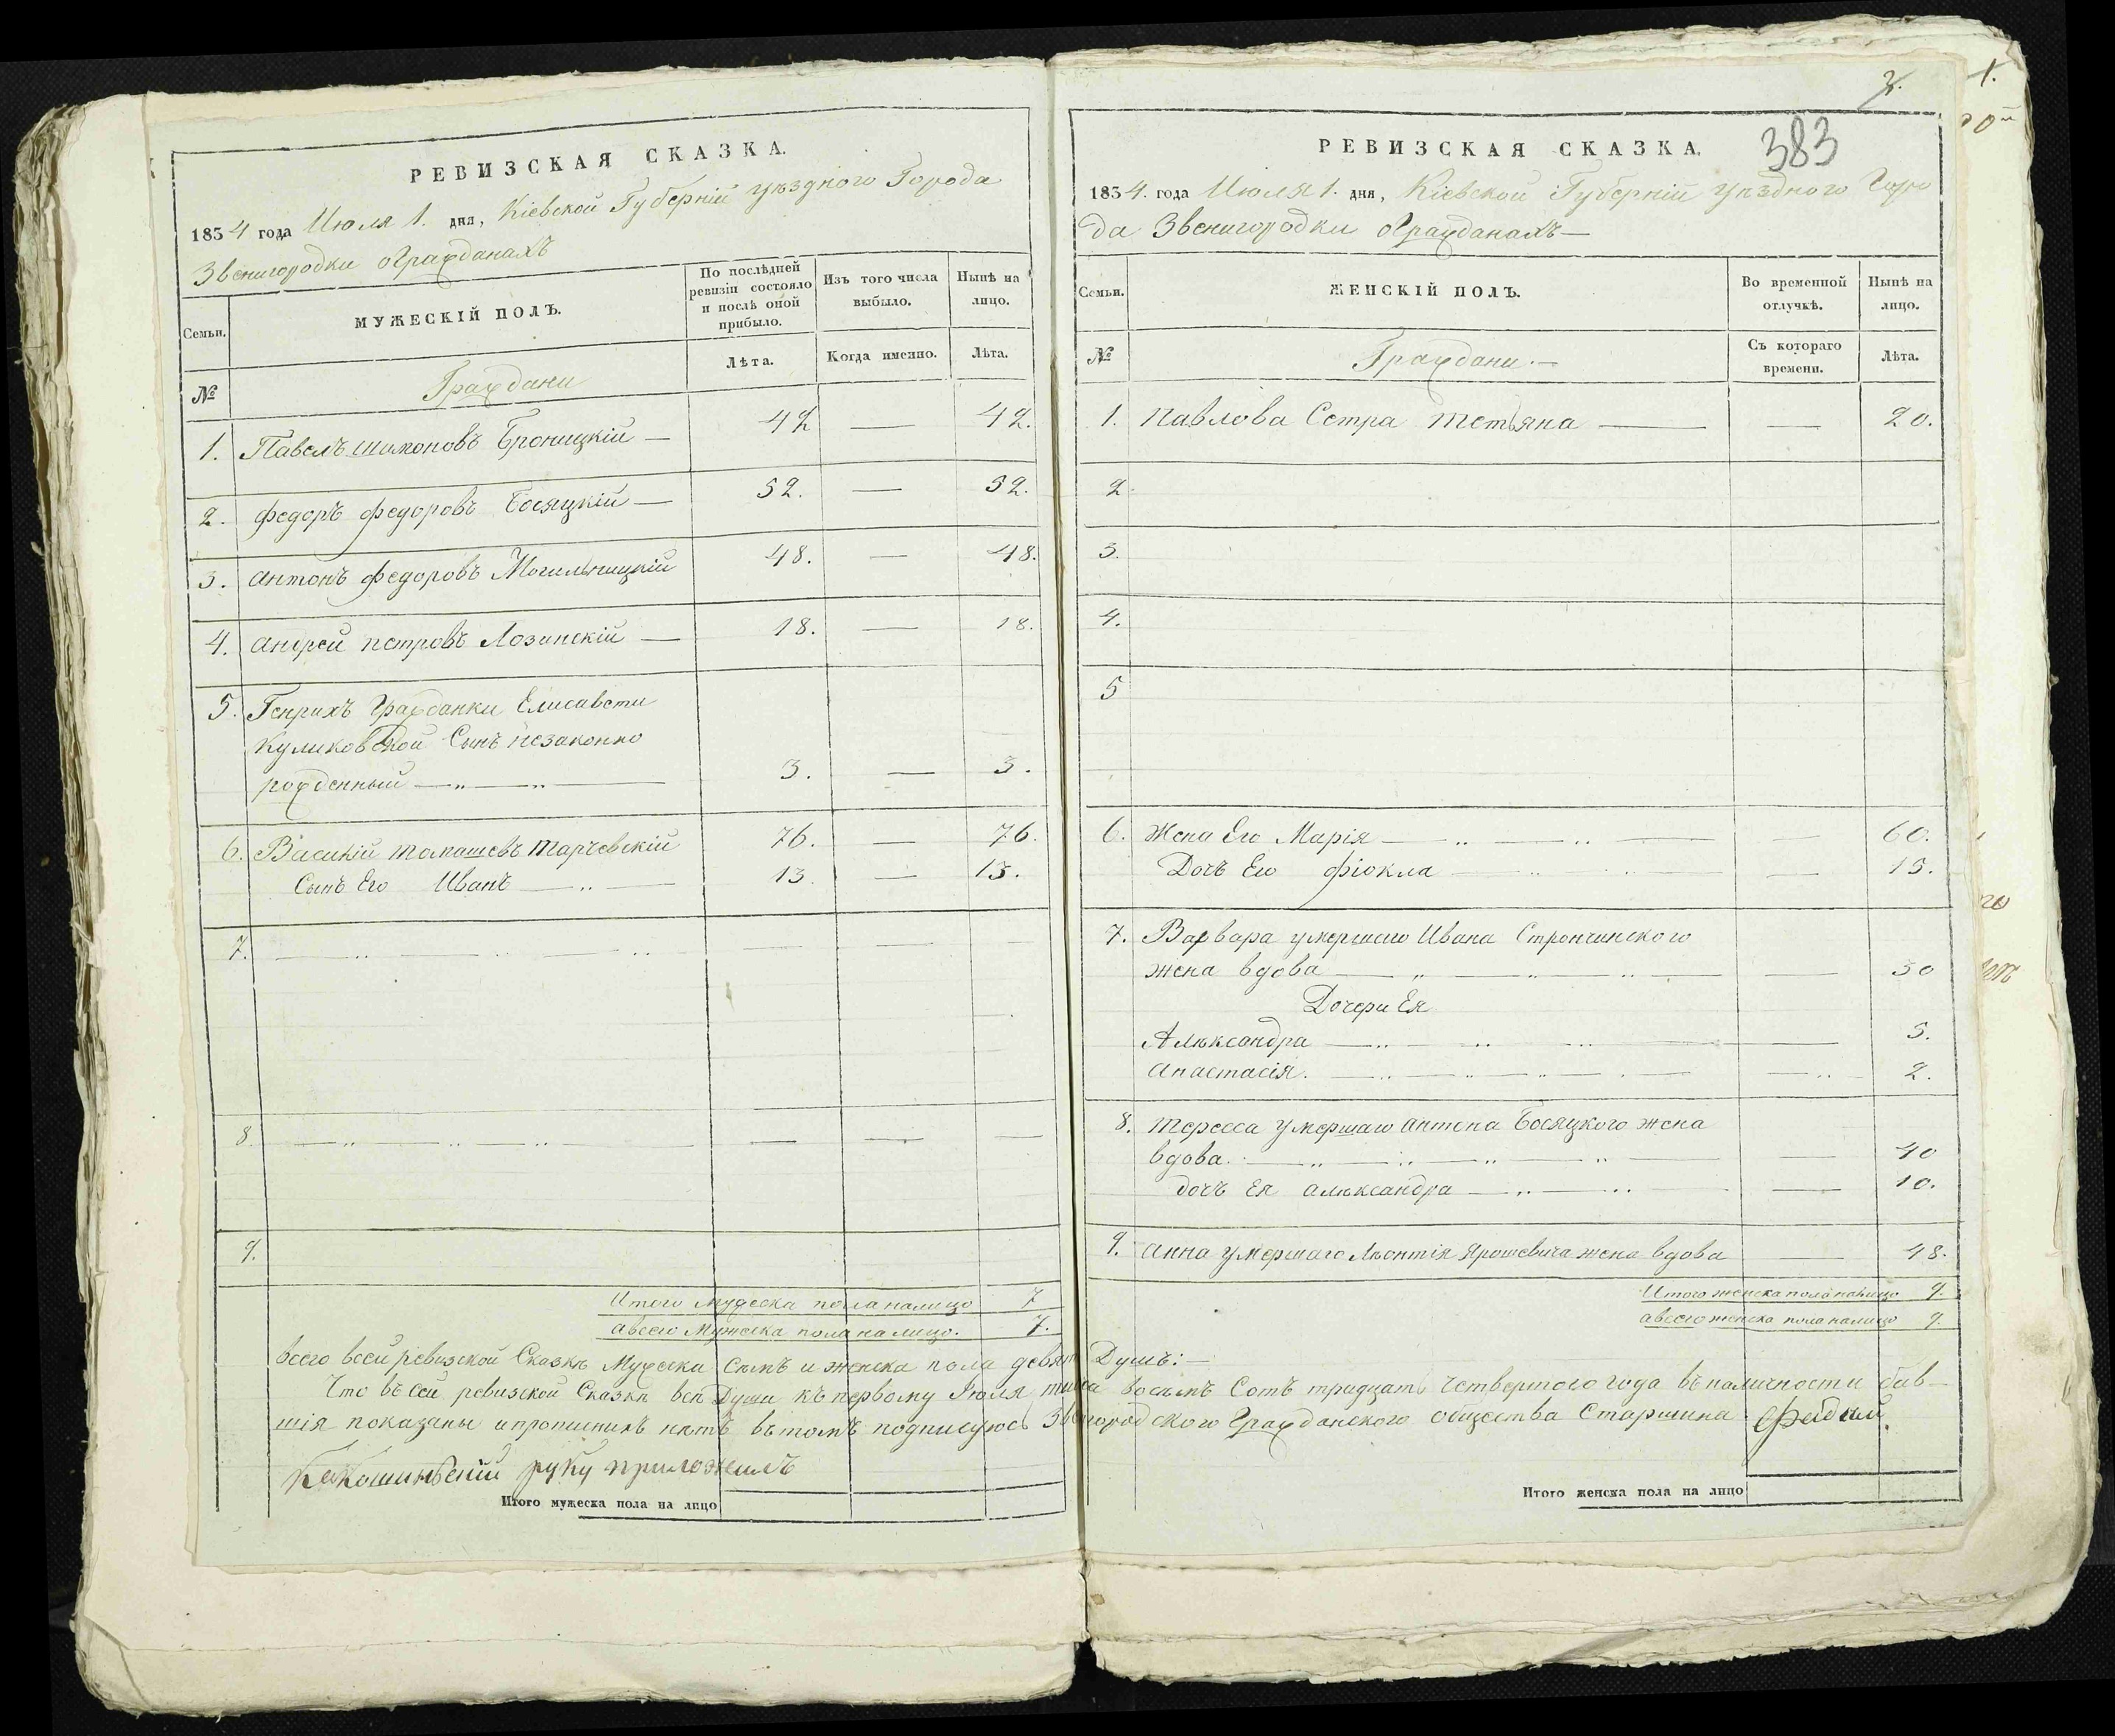 РЕВИЗСКАЯ СКАЗКА.
1834 года Июля 1. дня, Кіевской Губерніи уѣзднаго Города
Звенигородки оГражданахъ
Семьи.
МУЖЕСКІЙ ПОЛЪ.
По послѣдней ревизіи состояло и послѣ оной прибыло.
Изъ того числа выбыло.
Нынѣ на лицо.
№
Граждани
Лѣта.
Когда именно.
Лѣта.
1. Павелъ Шимоновъ Броницкій — 42 — 42.
2. федоръ федоровъ Босяцкій — 52. — 52.
3. антонъ федоровъ Могильницкій 48. — 48.
4. андрей петровъ Лозинскій — 18. — 18.
5. Генрихъ Гражданки Елисавети
Куликовской Сынъ незаконно
рожденный — „ — „ — 3. — 3.
6. Василій томашевъ Тарчевскій 76. — 76.
Сынъ Его Иванъ — „ — 13. — 13.
7. — „ — „ — „ — — —
8. — „ — „ — „ — — — —
9.
Итого мужеска пола налицо 7
авсего Мужеска пола на лицо. 7.
3.
1.
383
РЕВИЗСКАЯ СКАЗКА.
1834. года Июля 1. дня, Кіевской Губерніи уѣзднаго Горо
да Звенигородки оГражданахъ —
Семьи.
ЖЕНСКІЙ ПОЛЪ.
Во временной отлучкѣ.
Нынѣ на лицо.
№
Граждани. —
Съ котораго времени.
Лѣта.
1. Павлова Сетра Тетьяна — — 20.
2.
3.
4.
5
6. Жена Его Марія — „ — „ — — 60.
Дочъ Его фіокла — — 15.
7. Варвара умершаго Ивана Стрончинского
жена вдова — „ — „ — „ — — 30
Дочери Ея
Алѣксандра — „ — „ — „ — — 5.
анастасія. — „ — „ — „ — — „ 2.
8. Тересса умершаго антона Босяцкого жена
вдова. — „ — „ — „ — „ — — 40
дочъ Ея алѣксандра — „ — „ — 10.
9. анна умершаго Лѣонтія Ярошевича жена вдова — 48.
Итого женска пола налицо 9.
авсего женска пола налицо 9.
всего всей ревизской Сказкѣ Мужеска Семъ и женска пола девять Душъ: —
Что въ сей ревизской Сказкѣ всѣ Души къ первому Іюля тисяча восемъ Сотъ тридцать Четвертого года въ наличности бив-
шія показаны ипрописнихъ нѣтъ въ томъ подписуюсь Звенгородского Гражданского общества Старшина
руку приложилъ
Итого мужеска пола на лицо
Итого женска пола на лицо